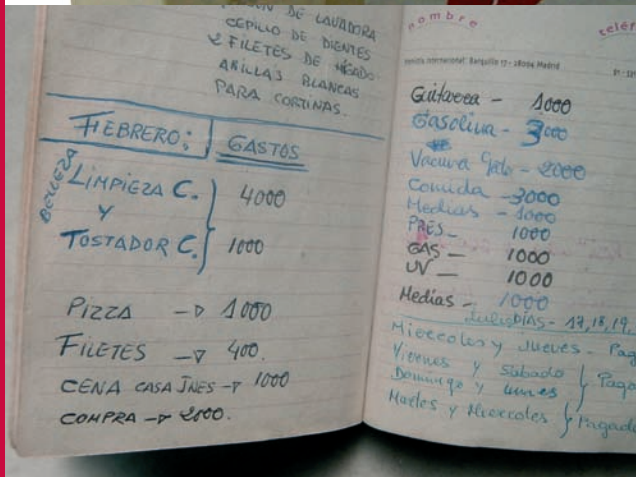 DE LAVADORA
CEPILLO DE DIENTES
2 FILETES DE HÍGADO
ANILLAS BLANCAS
PARA CORTINAS.
FEBRERO: GASTOS
BELLEZA
LIMPIEZA C. 4000
Y
TOSTADOR C. 1000
PIZZA → 1000
FILETES → 400.
CENA CASA INES → 1000
COMPRA → 2000.
nombre
teléf
revista internacional: Barquillo 17 - 28004 Madrid
Guitarra - 1000
Gasolina - 3000
Vacuna Gato - 2000
Comida - 3000
Medias - 1000
PRES - 1000
GAS - 1000
UV - 1000
Medias - 1000
DÍAS - 17, 18, 19
Miercoles y Jueves - Pag
Viernes y Sabado } Pago
Domingo y Lunes
Martes y Miercoles } Pagado